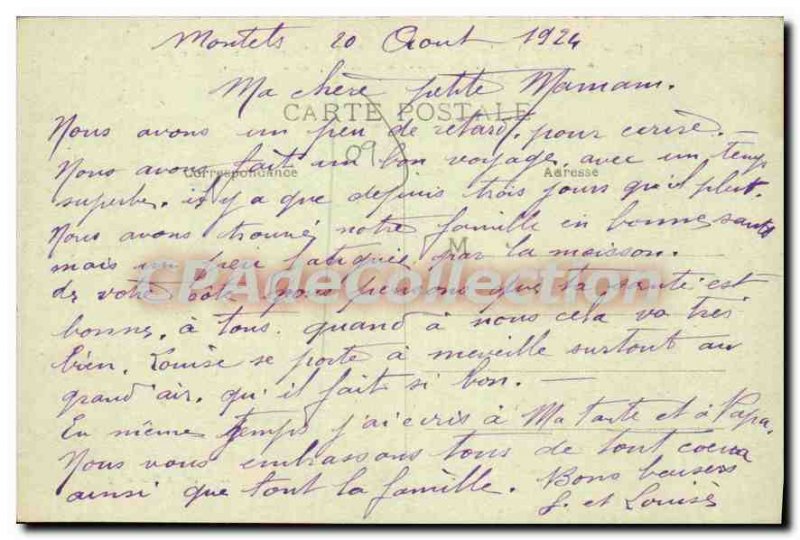 Montets 20 Aout 1924
Ma chère petite Mamam.
CARTE POSTALE
Nous avons un peu de retard, pour ecrire. —
09
Nous avons fait un bon voyage, avec un temp
Correspondance
Adresse
superbe. il y a que depuis trois jours qu'il pleut.
Nous avons trouvé notre famille en bonne santé
M
mais un peu fatiguée par la moisson.
CPAdeCollection
de votre coté nous pensons que la santé est
bonne, à tous. quand à nous cela va très
bien. Louise se porte à merveille surtout au
grand air, qu'il fait si bon. —
En même temps j'ai ecris à Ma tante et à Papa,
Nous vous embrassons tous de tout coeur
ainsi que tout la famille. Bons baisers
et Louise